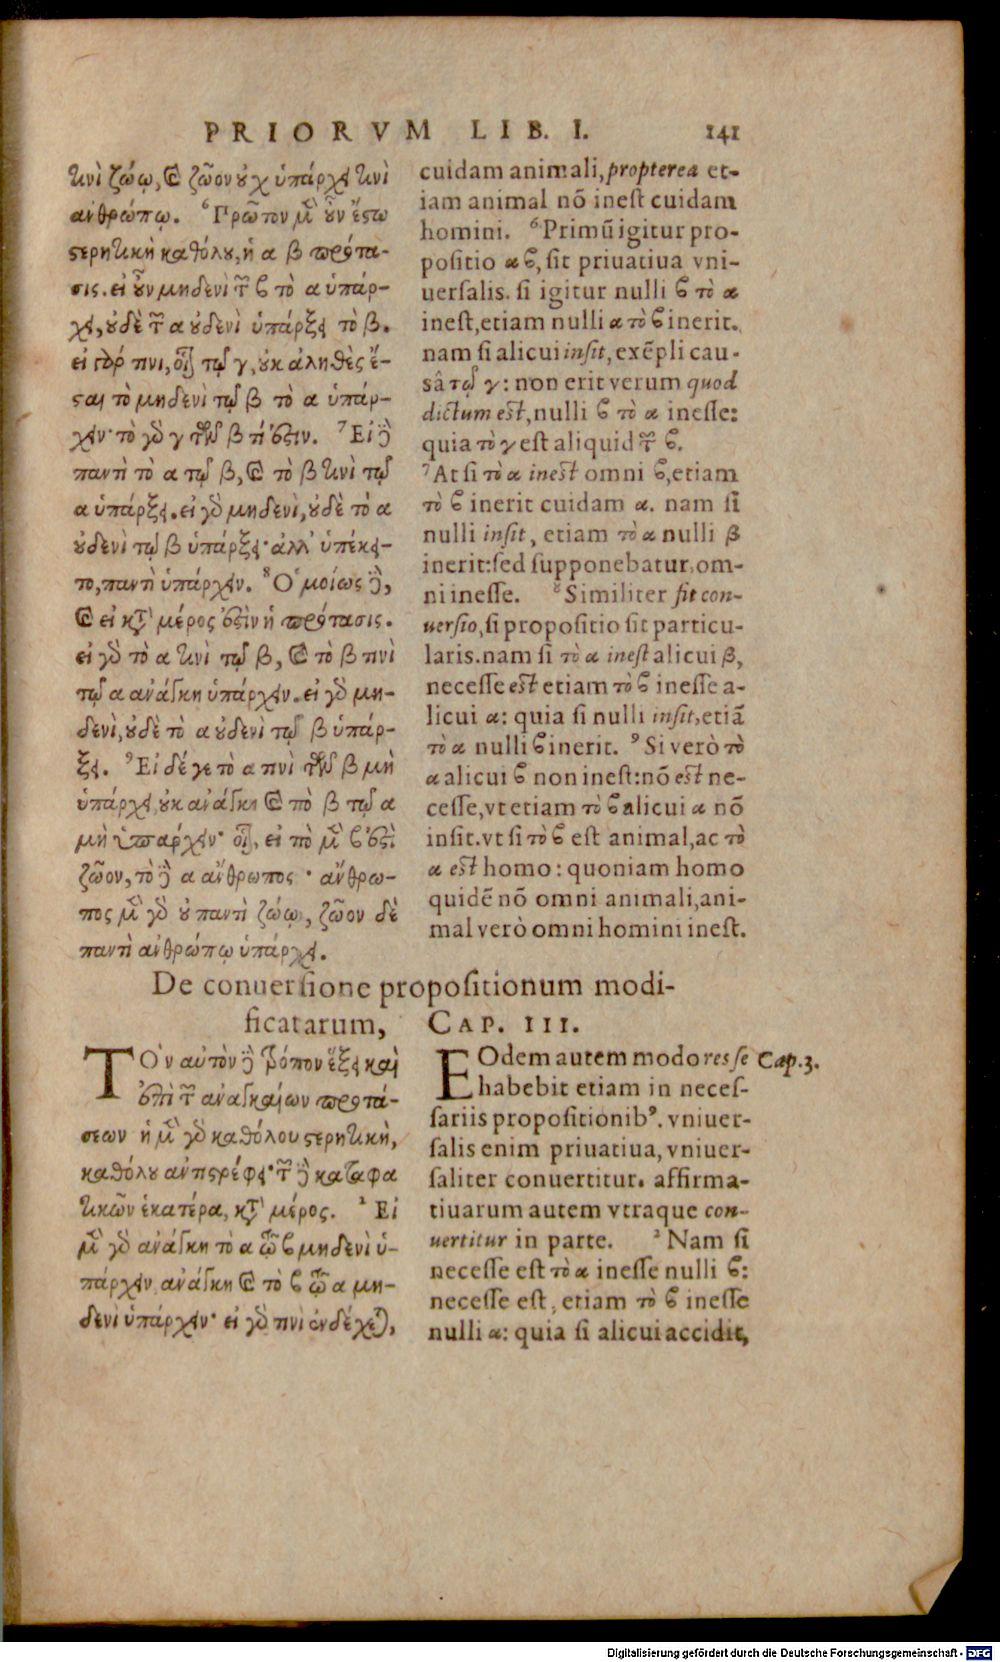 PRIORVM LIB. I. 141
τινὶ ζώῳ, καὶ ζῶον οὐχ ὑπάρχει τινὶ
ἀνθρώπῳ. ⁶Πρῶτον μὲν οὖν ἔστω
στερητικὴ καθόλου, ἡ α β πρότα-
σις. εἰ οὖν μηδενὶ τῶν β τὸ α ὑπάρ-
χει, οὐδὲ τῶν α οὐδενὶ ὑπάρξει τὸ β.
εἰ γάρ τινι, οἷον τῷ γ, οὐκ ἀληθὲς ἔ-
σται τὸ μηδενὶ τῷ β τὸ α ὑπάρ-
χειν· τὸ γὰρ γ τῶν β τί ἐστιν. ⁷Εἰ δὲ
παντὶ τὸ α τῷ β, καὶ τὸ β τινὶ τῷ
α ὑπάρξει. εἰ γὰρ μηδενὶ, οὐδὲ τὸ α
οὐδενὶ τῷ β ὑπάρξει· ἀλλ' ὑπέκει-
το, παντὶ ὑπάρχειν. ⁸Ὁμοίως δὲ,
καὶ εἰ κατὰ μέρος ἐστὶν ἡ πρότασις.
εἰ γὰρ τὸ α τινὶ τῷ β, καὶ τὸ β τινὶ
τῷ α ἀνάγκη ὑπάρχειν. εἰ γὰρ μη-
δενὶ, οὐδὲ τὸ α οὐδενὶ τῷ β ὑπάρ-
ξει. ⁹Εἰ δέ γε τὸ α τινὶ τῶν β μὴ
ὑπάρχει, οὐκ ἀνάγκη καὶ τὸ β τῷ α
μὴ ὑπαρχειν· οἷον, εἰ τὸ μὲν β ἐστὶ
ζῶον, τὸ δὲ α ἄνθρωπος · ἄνθρω-
πος μὲν γὰρ οὐ παντὶ ζώῳ, ζῶον δὲ
παντὶ ἀνθρώπῳ ὑπάρχει.
cuidam animali, propterea et-
iam animal nõ inest cuidam
homini. ⁶Primũ igitur pro-
positio α ϐ, sit priuatiua vni-
uersalis. si igitur nulli ϐ τὸ α
inest, etiam nulli α τὸ ϐ inerit.
nam si alicui insit, exẽpli cau-
sâ τῷ γ: non erit verum quod
dictum est, nulli ϐ τὸ α inesse:
quia τὸ γ est aliquid τῶν ϐ.
⁷At si τὸ α inest omni ϐ, etiam
τὸ ϐ inerit cuidam α. nam si
nulli insit, etiam τὸ α nulli β
inerit: sed supponebatur, om-
ni inesse. ⁸Similiter fit con-
uersio, si propositio sit particu-
laris. nam si τὸ α inest alicui β,
necesse est etiam τὸ ϐ inesse a-
licui α: quia si nulli insit, etiã
τὸ α nulli ϐ inerit. ⁹Si verò τὸ
α alicui ϐ non inest: nõ est ne-
cesse, vt etiam τὸ ϐ alicui α nõ
insit. vt si τὸ ϐ est animal, ac τὸ
α est homo: quoniam homo
quidẽ nõ omni animali, ani-
mal verò omni homini inest.
De conuersione propositionum modi-
ficatarum, CAP. III.
ΤΟν αὐτὸν δὲ τρόπον ἕξει καὶ
ἐπὶ τῶν ἀναγκαίων προτά-
σεων ἡ μὲν γὰρ καθόλου στερητικὴ,
καθόλου ἀντιστρέφει· τῶν δὲ καταφα
τικῶν ἑκατέρα, κατὰ μέρος. ² Εἰ
μὲν γὰρ ἀνάγκη τὸ α τῷ β μηδενὶ ὑ-
πάρχειν, ἀνάγκη καὶ τὸ β τῷ α μη-
δενὶ ὑπάρχειν· εἰ γὰρ τινὶ ἐνδέχεται,
EOdem autem modo res se
habebit etiam in neces-
sariis propositionibꝰ. vniuer-
salis enim priuatiua, vniuer-
saliter conuertitur. affirma-
tiuarum autem vtraque con-
uertitur in parte. ² Nam si
necesse est τὸ α inesse nulli ϐ:
necesse est, etiam τὸ ϐ inesse
nulli α: quia si alicui accidit,
Cap. 3.
Digitalisierung gefördert durch die Deutsche Forschungsgemeinschaft - DFG